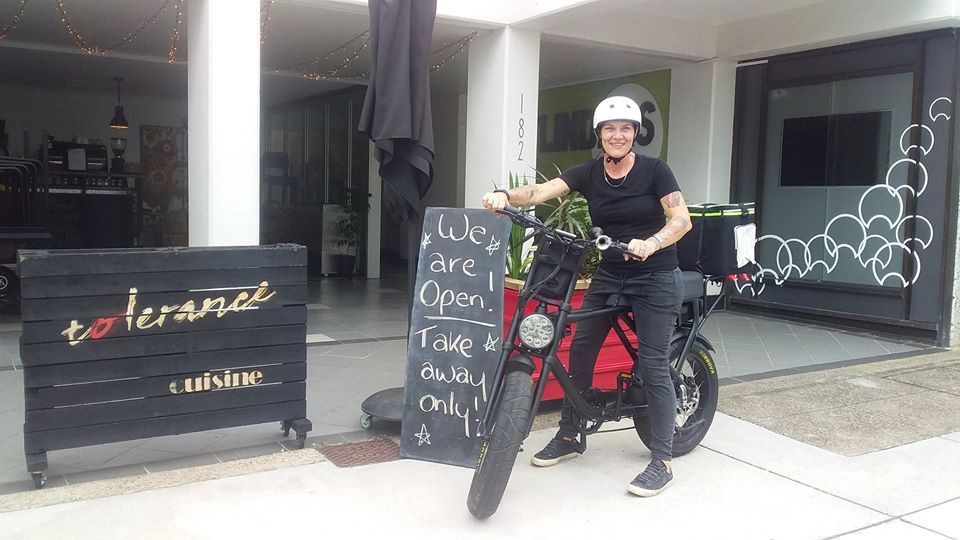 tolerance
cuisine
We
are
Open.
Take
away
only!
182